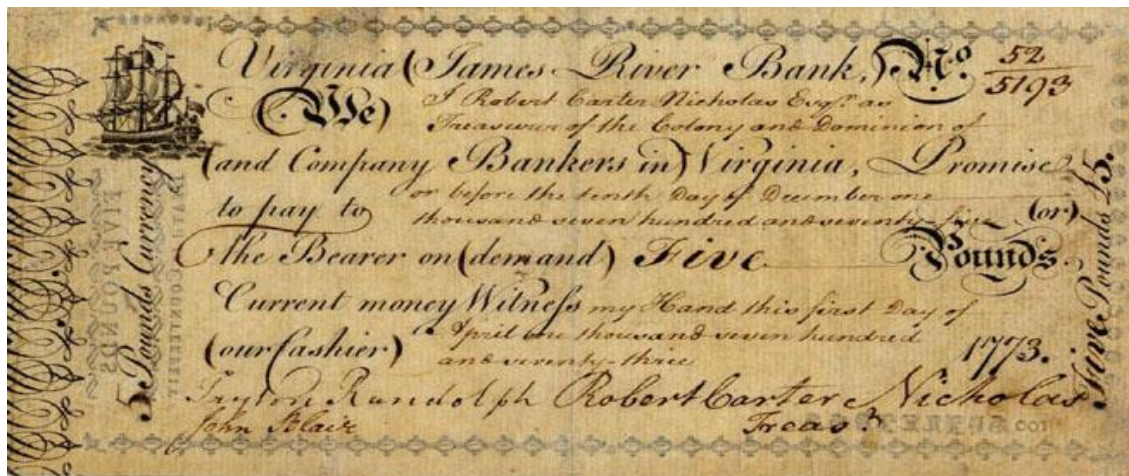 Virginia (James River Bank,) No. 52
5193
(We) I Robert Carter Nicholas Esqr. as
Treasurer of the Colony and Dominion of
(and Company Bankers in) Virginia, Promise
to pay to or before the tenth Day of December one
thousand seven hundred and seventy-five (or)
the Bearer on (demand) Five Pounds.
Current money Witness my Hand this first Day of
(our Cashier) April one thousand seven hundred
and seventy-three 1773.
Peyton Randolph Robert Carter Nicholas
John Blair Treasr
5 Pounds Currency
Five Pounds £5.
FIVE POUNDS